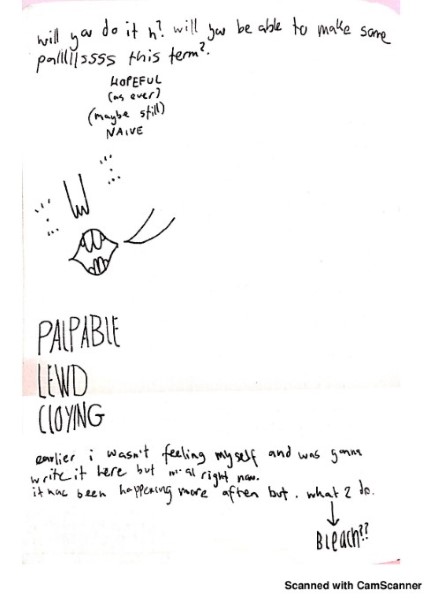 will you do it n? will you be able to make some
palllllssss this term?
HOPEFUL
(as ever)
(maybe still)
NAIVE
PALPABLE
LEWD
CLOYING
earlier i wasn't feeling myself and was gonna
write it here but right now.
it has been happening more often but. what 2 do.
Bleach??
Scanned with CamScanner